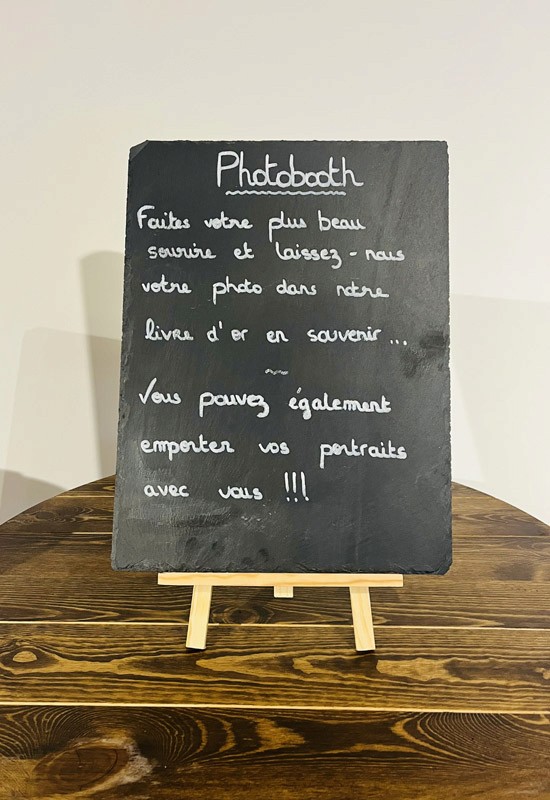 Photobooth
Faites votre plus beau
sourire et laissez-nous
votre photo dans notre
livre d'or en souvenir...
Vous pouvez également
emporter vos portraits
avec vous !!!